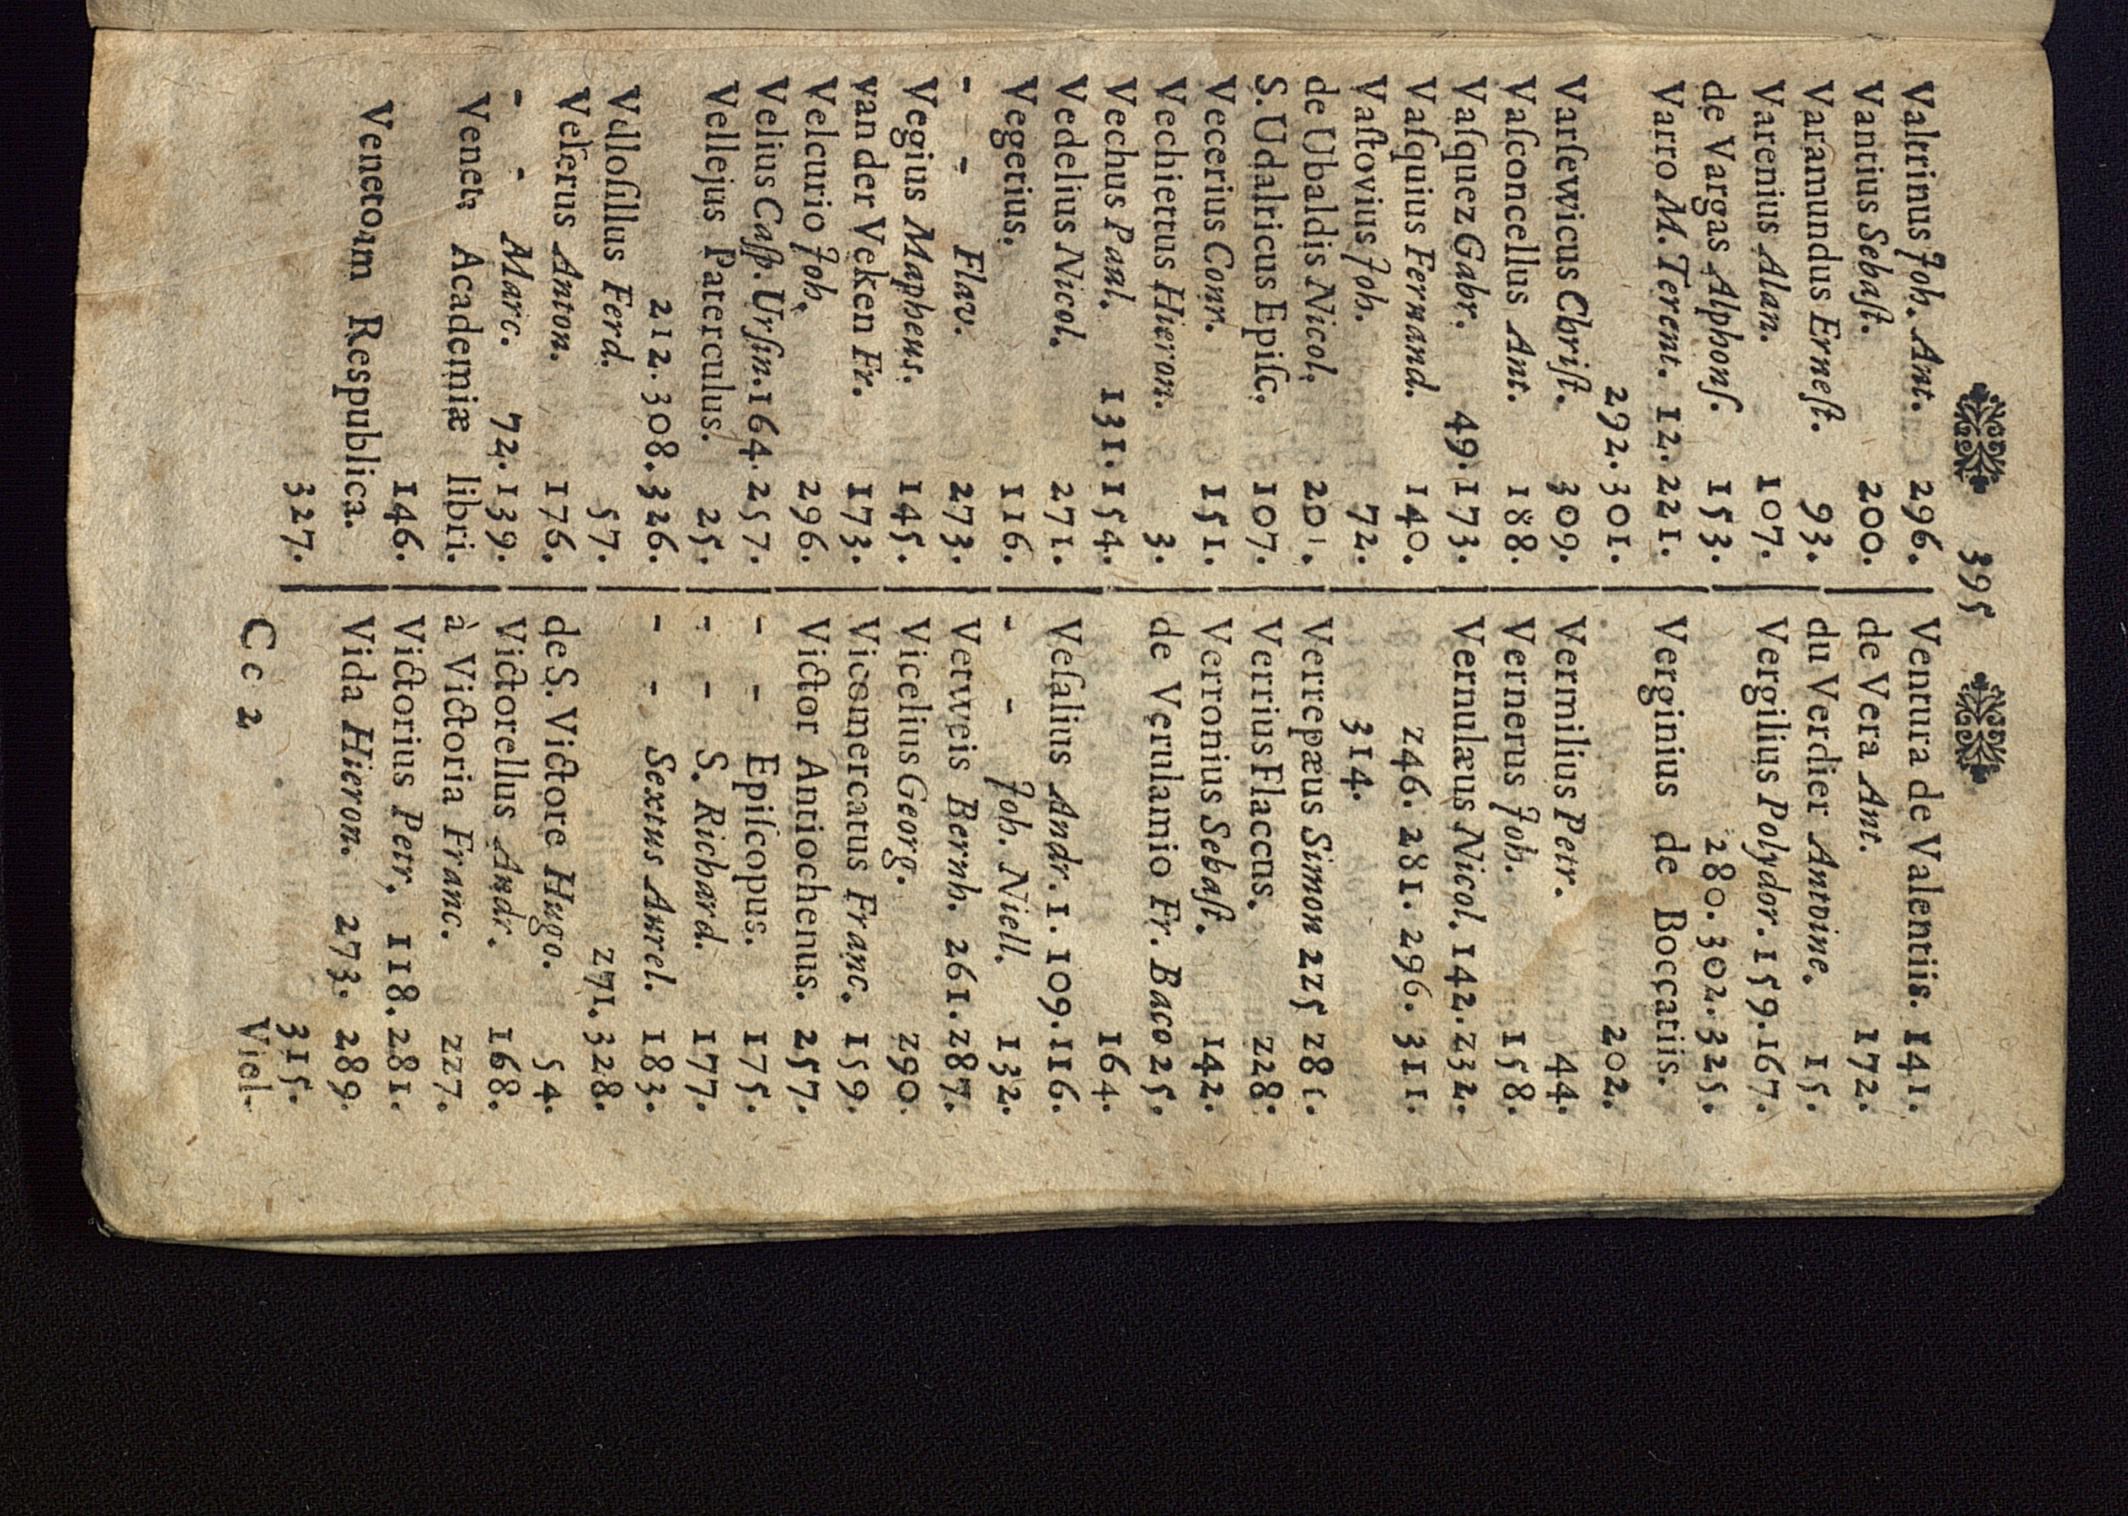 395
Valtrinus Joh. Ant. 296.
Vantius Sebaſt. 200.
Varamundus Erneſt. 93.
Varenius Alan. 107.
de Vargas Alphonſ. 153.
Varro M. Terent. 12. 221.
292. 301.
Varſewicus Chriſt. 309.
Vaſconcellus Ant. 188.
Vaſquez Gabr. 49. 173.
Vaſquius Fernand. 140.
Vaſtovius Joh. 72.
de Ubaldis Nicol. 201.
S. Udalricus Epiſc. 107.
Vecerius Conr. 151.
Vechiettus Hieron. 3.
Vechus Paul. 131. 154.
Vedelius Nicol. 271.
Vegetius. 116.
- - Flav. 273.
Vegius Mapheus. 145.
van der Veken Fr. 173.
Velcurio Joh. 296.
Velius Caſp. Urſin. 164. 257.
Vellejus Paterculus. 25.
212. 308. 326.
Vdloſillus Ferd. 57.
Velſerus Anton. 176.
- - Marc. 72. 139.
Venetæ Academiæ libri.
146.
Venetoꝛum Respublica.
327.
Ventura de Valentiis. 141.
de Vera Ant. 172.
du Verdier Antoine. 15.
Vergilius Polydor. 159. 167.
280. 302. 325.
Verginius de Boccatiis.
202.
Vermilius Petr. 44.
Vernerus Joh. 158.
Vernulæus Nicol. 142. 232.
246. 281. 296. 311.
314.
Verrepæus Simon 225 281.
Verrius Flaccus. 228.
Verronius Sebaſt. 142.
de Verulamio Fr. Baco 25.
164.
Veſalius Andr. 1. 109. 116.
- - Joh. Niell. 132.
Vetweis Bernh. 261. 287.
Vicelius Georg. 290.
Vicomercatus Franc. 159.
Victor Antiochenus. 257.
- - Epiſcopus. 175.
- - S. Richard. 177.
- - Sextus Aurel. 183.
271. 328.
de S. Victore Hugo. 54.
Victorellus Andr. 168.
à Victoria Franc. 227.
Victorius Petr. 118. 281.
Vida Hieron. 273. 289.
315.
Cc 2 Viel-